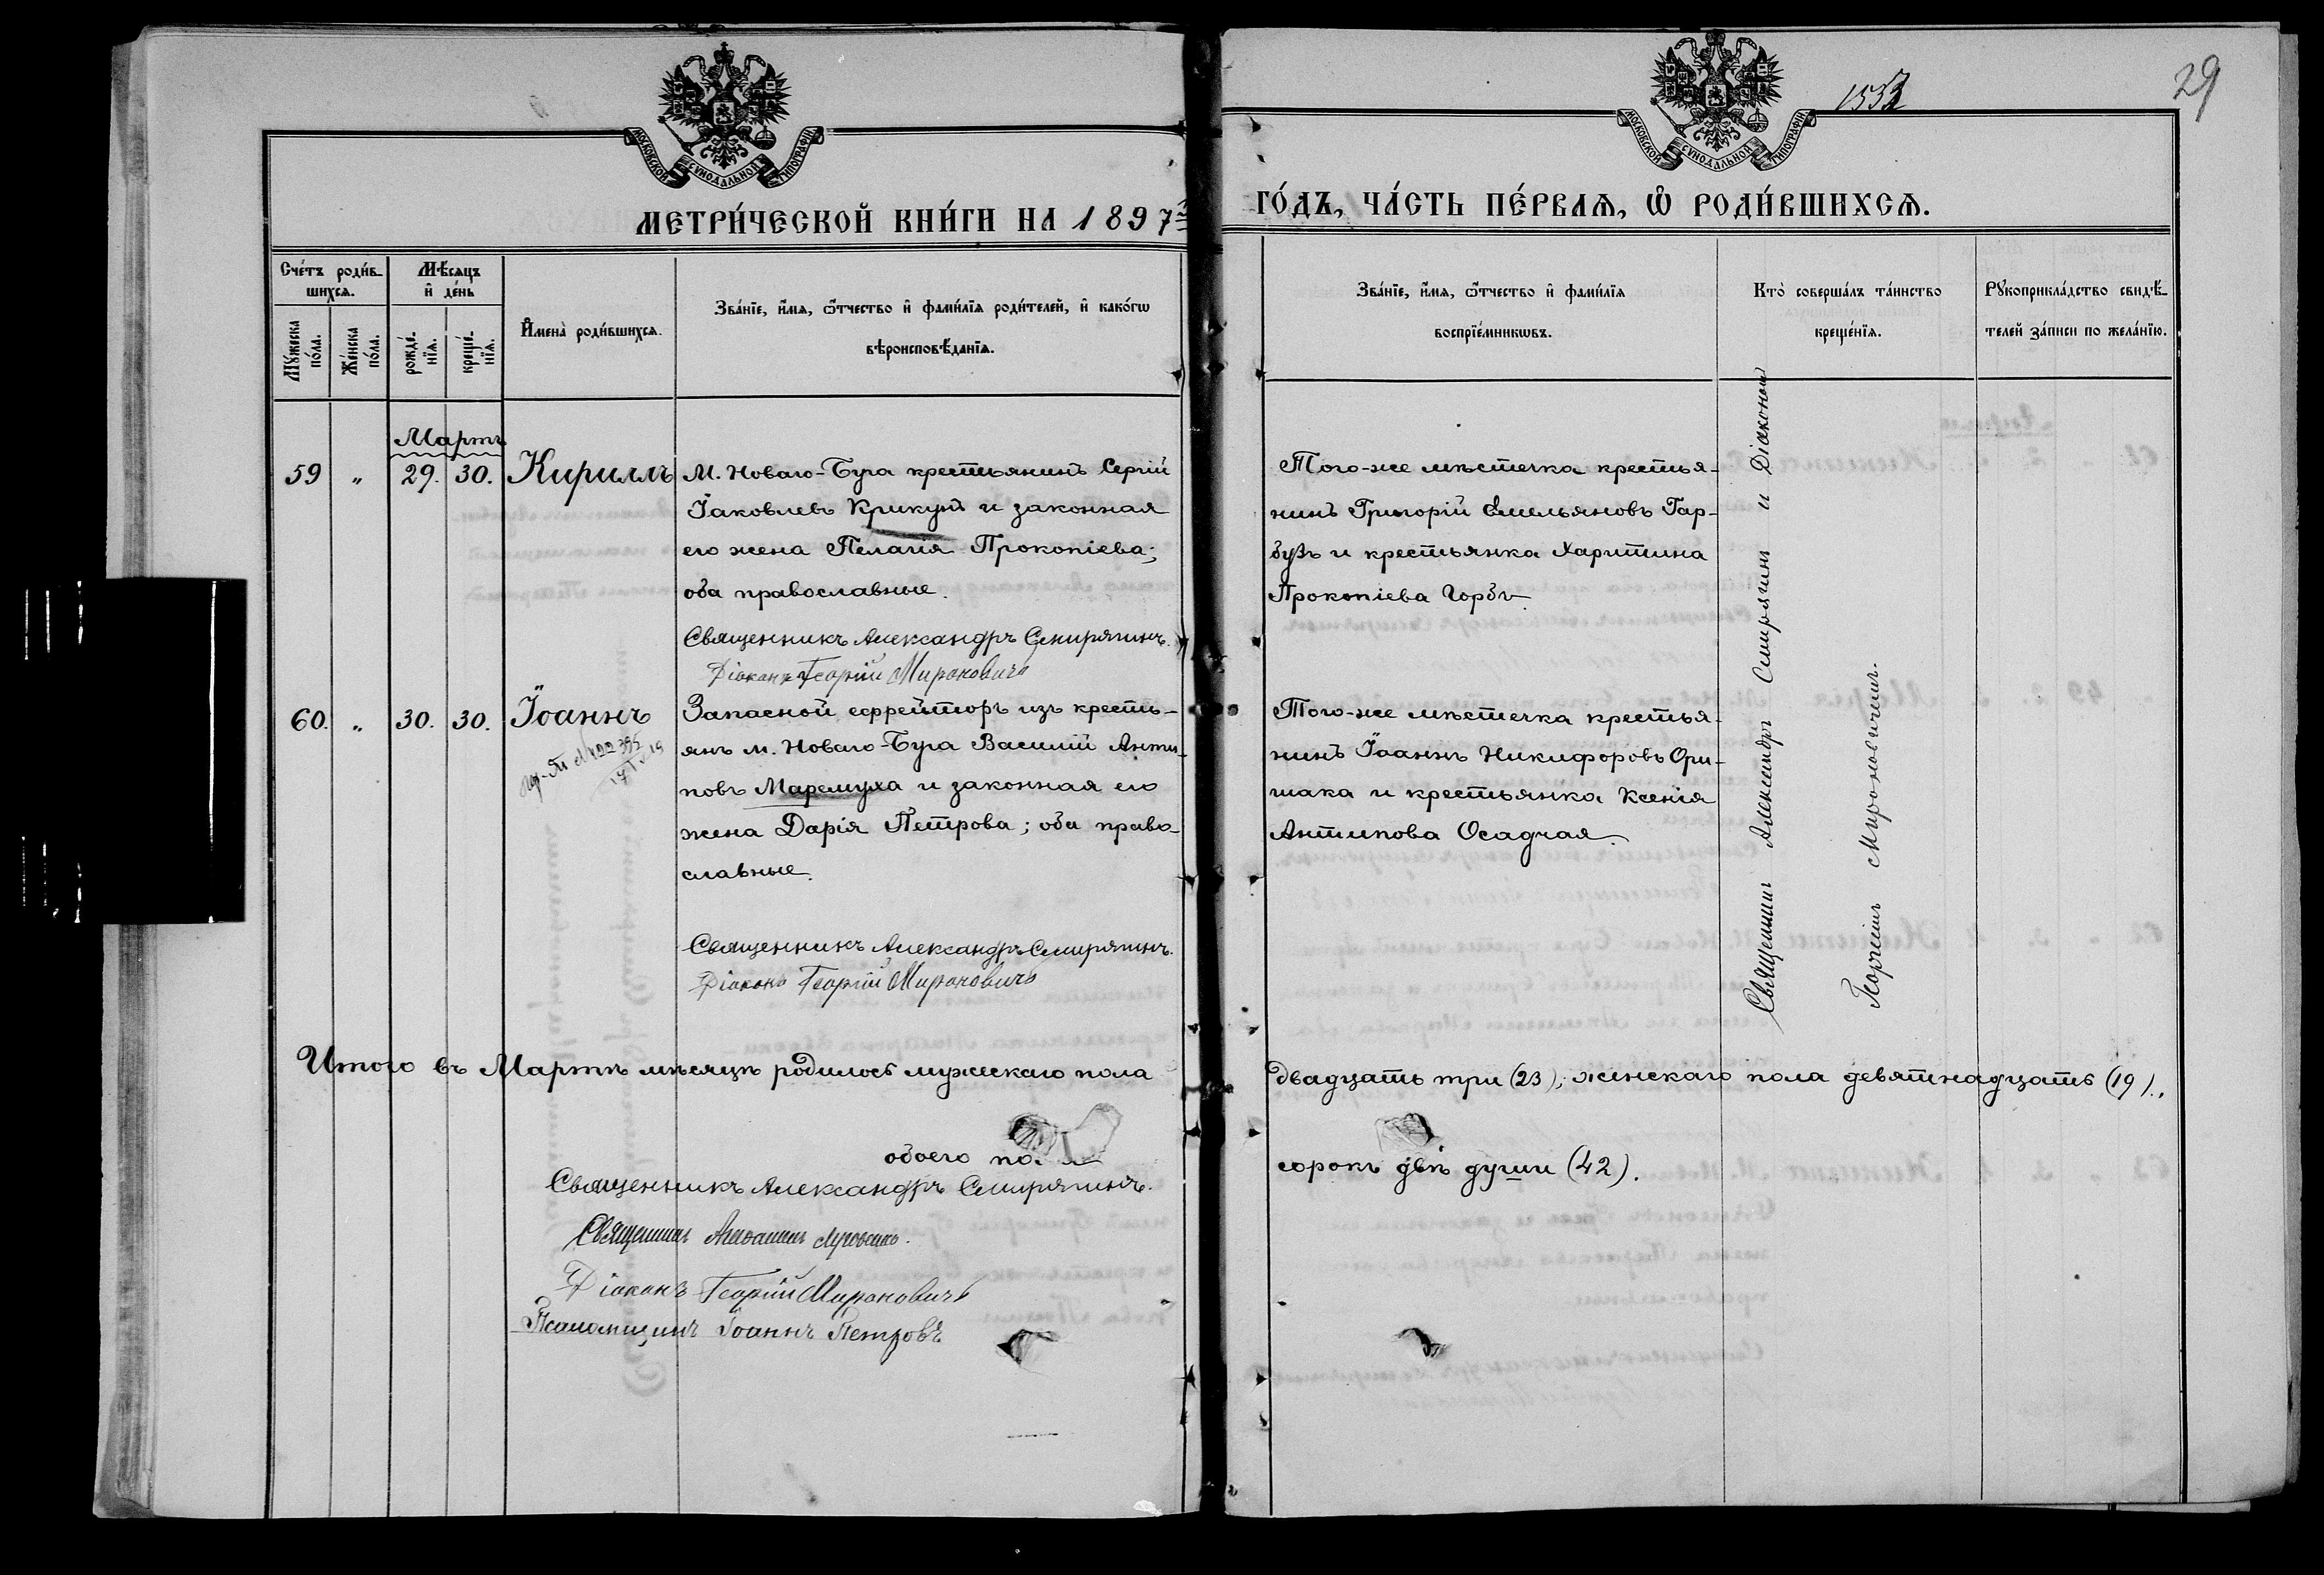 1552
29
МОСКОВСКОЙ СѴНОДАЛЬНОЙ ТИПОГРАФІИ
МОСКОВСКОЙ СѴНОДАЛЬНОЙ ТИПОГРАФІИ
МЕТРИ́ЧЕСКОЙ КНИ́ГИ НА 1897й
ГО́ДЪ, ЧА́СТЬ ПЕ́РВАѦ, Ѡ҆ РОДИ́ВШИХСѦ.
Сче́тъ роди́в-
шихсѧ.
Мꙋ́жеска по́ла.
Же́нска по́ла.
Мѣ́сѧцъ
и҆ де́нь
рожде́-нїѧ.
креще́-нїѧ.
И҆мена̀ роди́вшихсѧ.
Зва́нїе, и҆́мѧ, ѻ҆́тчество и҆ фами́лїѧ роди́телей, и҆ како́гѡ
вѣроисповѣ́данїѧ.
Зва́нїе, и҆́мѧ, ѻ҆́тчество и҆ фами́лїѧ
воспрїе́мникѡвъ.
Кто̀ соверша́лъ та́инство
креще́нїѧ.
Рꙋкоприкла́дство свидѣ́-
телей за́писи по жела́нїю.
Мартъ
59 " 29. 30. Кириллъ
М. Новаго-Буга крестьянинъ Сергій
Іаковлевъ Крикунъ и законная
его жена Пелагія Прокопіева;
оба православные.
Священникъ Александръ Смирягинъ.
Діаконъ Георгій Мироновичъ
Того-же мѣстечка крестья-
нинъ Григорій Емельяновъ Гар-
бузъ и крестьянка Харитина
Прокопіева Горбъ.
60. " 30. 30. Іоаннъ
Запасной ефрейторъ изъ кресть-
янъ м. Новаго-Буга Василій Анти-
повъ Маремуха и законная его
жена Дарія Петрова; оба право-
славные.
Священникъ Александръ Смирягинъ.
Діаконъ Георгій Мироновичъ
Того-же мѣстечка крестья-
нинъ Іоаннъ Никифоровъ Ори-
шака и крестьянка Ксенія
Антипова Осадчая.
Священникъ Александръ Смирягинъ и Діаконъ
Георгій Мироновичъ.
Итого въ Мартѣ мѣсяцѣ родилось мужескаго пола
двадцать три (23); женскаго пола девятнадцать (19).,
обоего пола
сорокъ двѣ души (42).
Священникъ Александръ Смирягинъ.
Священникъ
Діаконъ Георгій Мироновичъ
Псаломщикъ Іоаннъ Петровъ